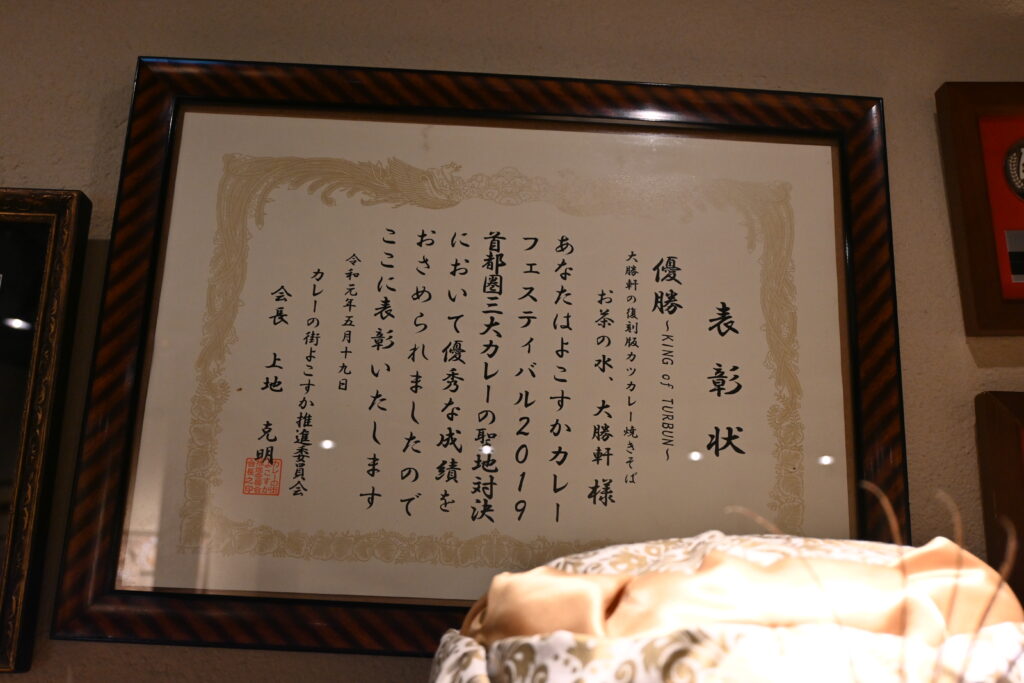 表彰状
優勝～KING of TURBUN～
大勝軒の復刻版カツカレー焼きそば
お茶の水、大勝軒 様
あなたはよこすかカレー
フェスティバル2019
首都圏三大カレーの聖地対決
において優秀な成績を
おさめられましたので
ここに表彰いたします
令和元年五月十九日
カレーの街よこすか推進委員会
会長 上地 克明